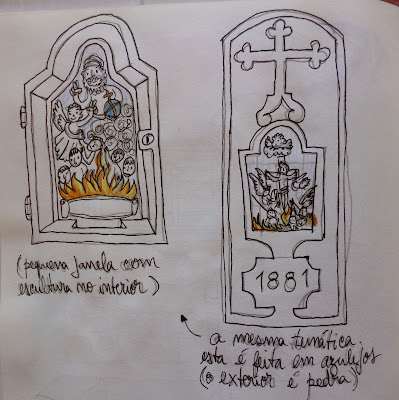 (pequena janela com
escultura no interior)
1881
a mesma temática.
esta é feita em azulejos
(o exterior é pedra)